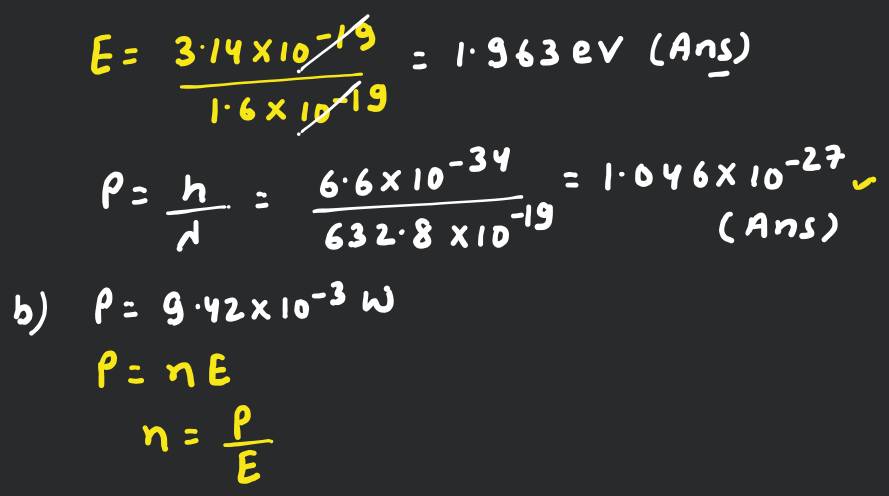 E = 3.14×10^-19 / 1.6×10^-19 = 1.963 eV (Ans)
P = h/λ = 6.6×10^-34 / 632.8×10^-19 = 1.046×10^-27 ✓
(Ans)
b) P = 9.42×10^-3 W
P = nE
n = P/E